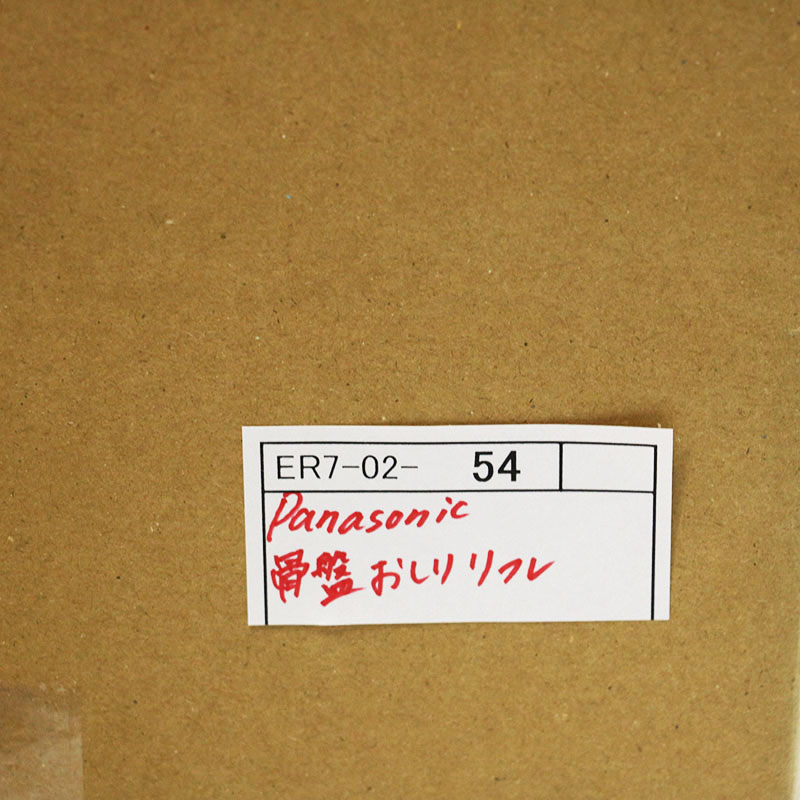 ER7-02- 54
Panasonic
骨盤おしりリフレ